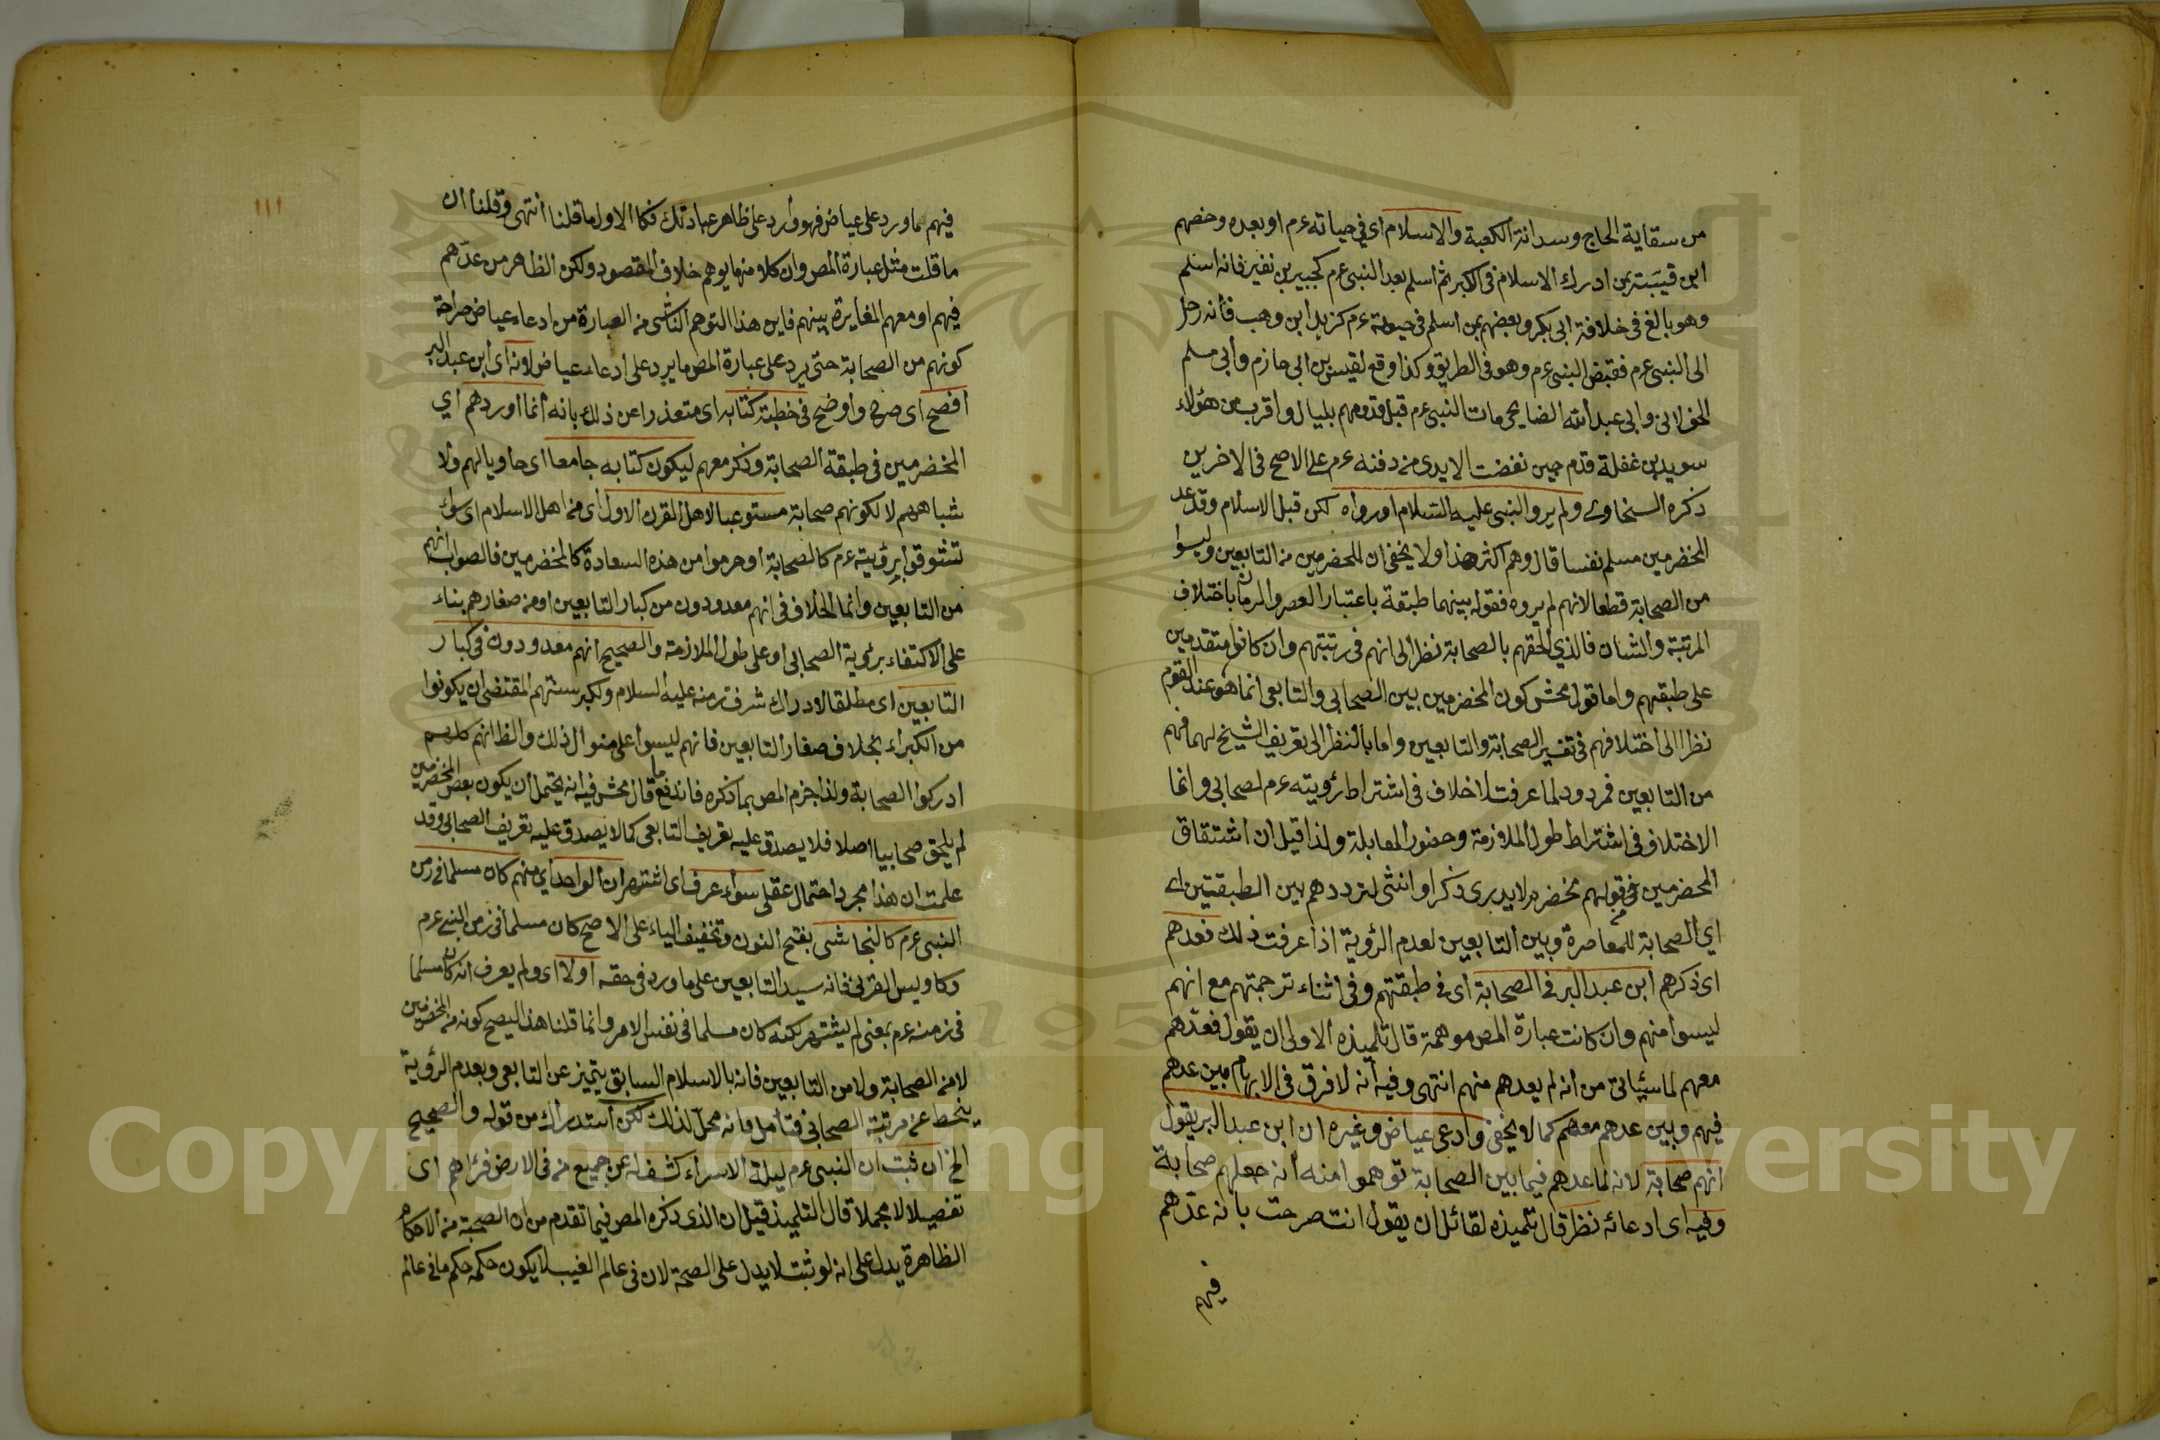 من سقاية الحاج وسدانة الكعبة والاسلام اي في حياته ءم او بعده وخصهم
ابن قتيبة بمن ادرك الاسلام في الكبر ثم اسلم بعد النبي ءم كجبير بن نفير فانه اسلم
وهو بالغ في خلافة ابي بكر وبعضهم بمن اسلم في حيوته ءم كزيد ابن وهب فانه رحل
الى النبي ءم فقبض النبي ءم وهو في الطريق وكذا وقع لقيس بن ابي حازم وأبي مسلم
الخولاني وابي عبد الله الصنابحي مات النبي ءم قبل قدومهم بليال واقرب من هؤلاء
سويد بن غفلة قدم حين نفضت الايدى من دفنه ءم على الاصح في الاخرين
ذكره السخاوي ولم ير والنبي عليه السلام او رواه لكن قبل الاسلام وقد عد
المخضرمين مسلم نفسا قال وهم اكثر هذا ولا يخفى ان المخضرمين من التابعين وليسوا
من الصحابة قطعا لانهم لم يروه فقوله بينهما طبقة باعتبار العصر والزمان باختلاف
المرتبة والشان فالذي الحقهم بالصحابة نظر الى انهم في رتبتهم وان كانوا متقدمين
على طبقتهم واما قول محش كون المخضرمين بين الصحابي والتابعي انما هو عند القوم
نظرا الى اختلافهم في تفسير الصحابة والتابعين واما بالنظر الى تعريف الشيخ لهما فهم
من التابعين فمردود لما عرفت لا خلاف في اشتراط رؤيته ءم لصحابي وانما
الاختلاف في اشتراط طول الملازمة وحضور المعاملة ولذا قيل ان اشتقاق
المخضرمين من قولهم لحم مخضرم لا يدرى ذكر او انثى لترددهم بين الطبقتين اي
اي الصحابة للمعاصرة وبين التابعين لعدم الرؤية اذا عرفت ذلك فعدهم
اى ذكرهم ابن عبد البر في الصحابة اى في طبقتهم وفي اثناء ترجمتهم مع انهم
ليسوا منهم وان كانت عبارة المص موهمة قال تلميذه الاولى ان يقول فعدهم
معهم لما سيأتي من انه لم يعدهم منهم انتهى وفيه انه لا فرق في الابهام بين عدهم
فيهم وبين عدهم معهم كما لا يخفى وادعى عياض وغيره ان ابن عبد البر يقول
انهم صحابة لانه لما عدهم فيما بين الصحابة توهموا منه أنه جعلهم صحابة
وفيه اى ادعائه نظر قال تلميذه لقائل ان يقول انت صرحت بانه عدهم
فيهم
١١١
فيهم فما ورد على عياض فهو وارد على ظاهر عبارتك فكان الاولى ما قلنا انتهى وقلنا ان
ما قلت مثل عبارة المص وان كلا منهما يوهم خلاف المقصود ولكن الظاهر من عدهم
فيهم او معهم المغايرة بينهم فاين هذا التوهم الناشى من العبارة من ادعاء عياض صراحة
كونهم من الصحابة حتى يرد على عبارة المص ما يرد على ادعاء عياض لانه اى ابن عبد البر
افصح اى صرح واوضح في خطبة كتابه اى متعذرا عن ذلك بانه انما اوردهم اي
المخضرمين في طبقة الصحابة وذكر معهم ليكون كتابه جامعا اى حاويا لهم ولا
شباههم لا لكونهم صحابة مستوعبا لاهل القرن الاول اى من اهل الاسلام اى سواء
تشوقوا برؤيته ءم كالصحابة او حرموا من هذه السعادة كالمخضرمين فالصواب انهم
من التابعين وانما الخلاف في انهم معدودون من كبار التابعين او من صغارهم بناء
على الاكتفاء برؤية الصحابي او على طول الملازمة والصحيح انهم معدودون في كبار
التابعين اى مطلقا لادراك شرف زمنه عليه السلام ولكبر سنهم المقتضى ان يكونوا
من الكبراء بخلاف صغار التابعين فانهم ليسوا على منوال ذلك والظ انهم كلهم
ادركوا الصحابة ولذا جزم المص بما ذكره فاندفع ما قال محش فيه انه يحتمل ان يكون بعض المخضرمين
لم يلحق صحابيا اصلا فلا يصدق عليه تعريف التابعي كما لا يصدق عليه تعريف الصحابي وقد
علمت ان هذا مجرد احتمال عقلي سواء عرف اى اشتهر ان الواحد اي منهم كان مسلما في زمن
النبي ءم كالنجاشى بفتح النون وتخفيف الياء على الاصح كان مسلما في زمن النبي ءم
وكاويس القرني فانه سيد التابعين على ما ورد في حقه اولا اى ولم يعرف انه كان مسلما
في زمنه ءم بمعنى لم يشتهر لكنه كان مسلما في نفس الامر وانما قلنا هذا ليصح كونه من المخضرمين
لا من الصحابة ولا من التابعين فانه بالاسلام السابق يتميز عن التابعي وبعدم الرؤية
ينحط عن مرتبة الصحابي فتأمل فانه محل لذلك لكن استدراك من قوله والصحيح
الخ ان ثبت ان النبي ءم ليلة الاسراء كشف له عن جميع من في الارض فرأاهم اى
تفصيلا لا مجملا قال التلميذ قيل ان الذى ذكره المص فيما تقدم من ان الصحبة من الاحكام
الظاهرة يدل على انه لو ثبت لا يدل على الصحة لان في عالم الغيب لا يكون حكمه حكم ما في عالم
Copyright © King Saud University